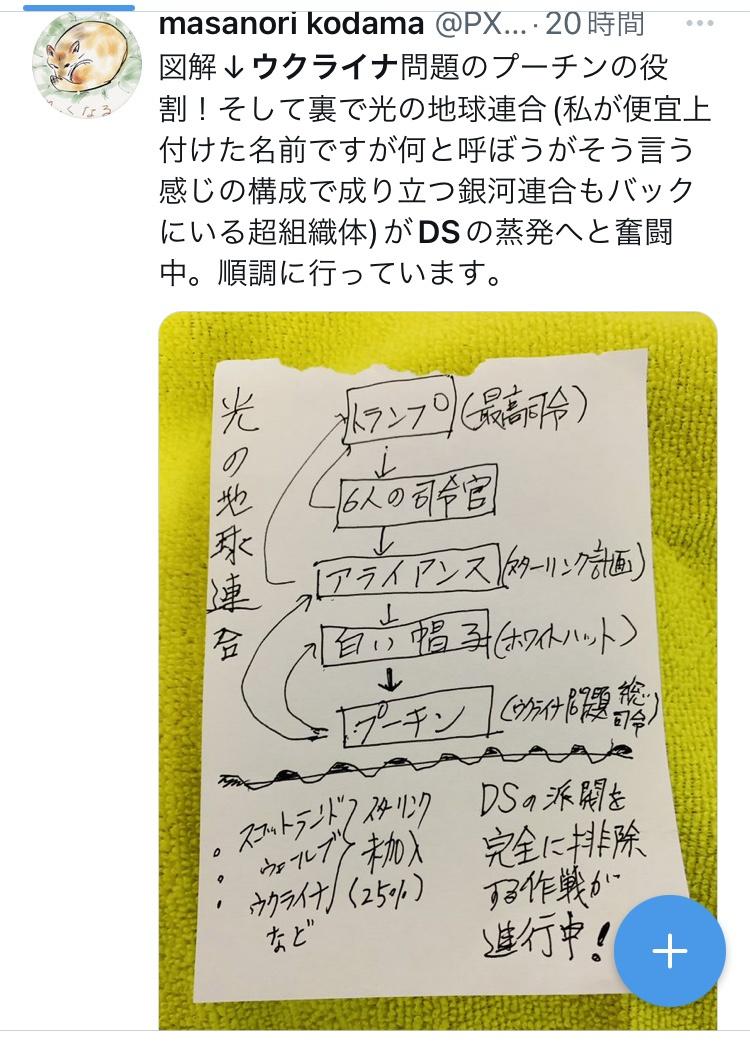 masanori kodama @PX... · 20時間
図解↓ウクライナ問題のプーチンの役
割！そして裏で光の地球連合(私が便宜上
付けた名前ですが何と呼ぼうがそう言う
感じの構成で成り立つ銀河連合もバック
にいる超組織体)がDSの蒸発へと奮闘
中。順調に行っています。
光の地球連合
トランプ(最高司令)
6人の司令官
アライアンス(スターリンク計画)
白い帽子(ホワイトハット)
プーチン(ウクライナ問題総司令)
・スコットランド
・ウェールズ
・ウクライナ
など
スターリンク
未加入
(25%)
DSの派閥を
完全に排除
する作戦が
進行中!